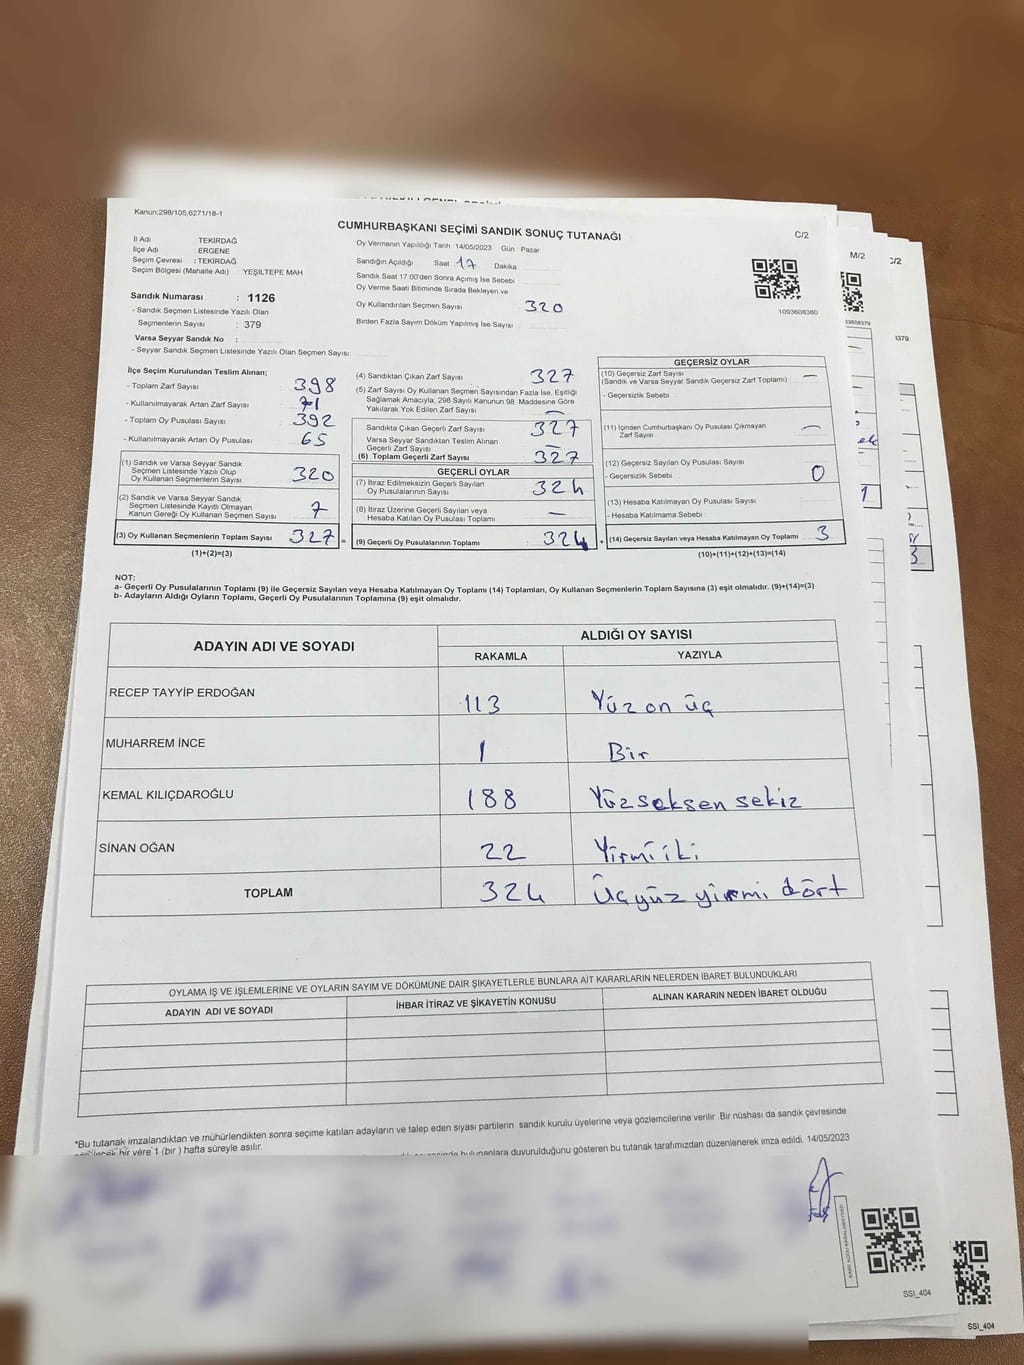 Kanun:298/105,6271/18-1
CUMHURBAŞKANI SEÇİMİ SANDIK SONUÇ TUTANAĞI
C/2
M/2
C/2
İl Adı TEKİRDAĞ
İlçe Adı : ERGENE
Seçim Çevresi : TEKİRDAĞ
Seçim Bölgesi (Mahalle Adı) : YEŞİLTEPE MAH
Sandık Numarası : 1126
- Sandık Seçmen Listesinde Yazılı Olan
Seçmenlerin Sayısı : 379
Varsa Seyyar Sandık No :
- Seyyar Sandık Seçmen Listesinde Yazılı Olan Seçmen Sayısı:
Oy Vermenin Yapıldığı Tarih 14/05/2023 Gün : Pazar
Sandığın Açıldığı Saat 17 Dakika
Sandık Saat 17:00'den Sonra Açımış İse Sebebi :
Oy Verme Saati Bitiminde Sırada Bekleyen ve
Oy Kullandırılan Seçmen Sayısı 320
Birden Fazla Sayım Döküm Yapılmış İse Sayısı :
1093608380
İlçe Seçim Kurulundan Teslim Alınan;
- Toplam Zarf Sayısı 398
- Kullanılmayarak Artan Zarf Sayısı 71
- Toplam Oy Pusulası Sayısı 392
- Kullanılmayarak Artan Oy Pusulası 65
(1) Sandık ve Varsa Seyyar Sandık
Seçmen Listesinde Yazılı Olup
Oy Kullanan Seçmenlerin Sayısı 320
(2) Sandık ve Varsa Seyyar Sandık
Seçmen Listesinde Kayıtlı Olmayan
Kanun Gereği Oy Kullanan Seçmen Sayısı 7
(3) Oy Kullanan Seçmenlerin Toplam Sayısı 327 =
(1)+(2)=(3)
(4) Sandıktan Çıkan Zarf Sayısı 327
(5) Zarf Sayısı Oy Kullanan Seçmen Sayısından Fazla İse, Eşitliği
Sağlamak Amacıyla; 298 Sayılı Kanunun 98. Maddesine Göre
Yakılarak Yok Edilen Zarf Sayısı —
Sandıkta Çıkan Geçerli Zarf Sayısı 327
Varsa Seyyar Sandıktan Teslim Alınan
Geçerli Zarf Sayısı —
(6) Toplam Geçerli Zarf Sayısı 327
GEÇERLİ OYLAR
(7) İtiraz Edilmeksizin Geçerli Sayılan
Oy Pusulalarının Sayısı 324
(8) İtiraz Üzerine Geçerli Sayılan veya
Hesaba Katılan Oy Pusulası Toplamı —
(9) Geçerli Oy Pusulalarının Toplamı 324 +
GEÇERSİZ OYLAR
(10) Geçersiz Zarf Sayısı
(Sandık ve Varsa Seyyar Sandık Geçersiz Zarf Toplamı) —
- Geçersizlik Sebebi :
(11) İçinden Cumhurbaşkanı Oy Pusulası Çıkmayan
Zarf Sayısı —
(12) Geçersiz Sayılan Oy Pusulası Sayısı
- Geçersizlik Sebebi : 0
(13) Hesaba Katılmayan Oy Pusulası Sayısı
- Hesaba Katılmama Sebebi :
(14) Geçersiz Sayılan veya Hesaba Katılmayan Oy Toplamı 3
(10)+(11)+(12)+(13)=(14)
NOT:
a- Geçerli Oy Pusulalarının Toplamı (9) ile Geçersiz Sayılan veya Hesaba Katılmayan Oy Toplamı (14) Toplamları, Oy Kullanan Seçmenlerin Toplam Sayısına (3) eşit olmalıdır. (9)+(14)=(3)
b- Adayların Aldığı Oyların Toplamı, Geçerli Oy Pusulalarının Toplamına (9) eşit olmalıdır.
ADAYIN ADI VE SOYADI
ALDIĞI OY SAYISI
RAKAMLA YAZIYLA
RECEP TAYYİP ERDOĞAN 113 Yüz on üç
MUHARREM İNCE 1 Bir
KEMAL KILIÇDAROĞLU 188 Yüzseksen sekiz
SİNAN OĞAN 22 Yirmi iki
TOPLAM 324 Üçyüz yirmi dört
OYLAMA İŞ VE İŞLEMLERİNE VE OYLARIN SAYIM VE DÖKÜMÜNE DAİR ŞİKAYETLERLE BUNLARA AİT KARARLARIN NELERDEN İBARET BULUNDUKLARI
ADAYIN ADI VE SOYADI İHBAR İTİRAZ VE ŞİKAYETİN KONUSU ALINAN KARARIN NEDEN İBARET OLDUĞU
*Bu tutanak imzalandıktan ve mühürlendikten sonra seçime katılan adayların ve talep eden siyasi partilerin sandık kurulu üyelerine veya gözlemcilerine verilir. Bir nüshası da sandık çevresinde
bir yere 1 (bir ) hafta süreyle asılır.
bulunanlara duyurulduğunu gösteren bu tutanak tarafımızdan düzenlenerek imza edildi. 14/05/2023
SSI_404
SSI_404